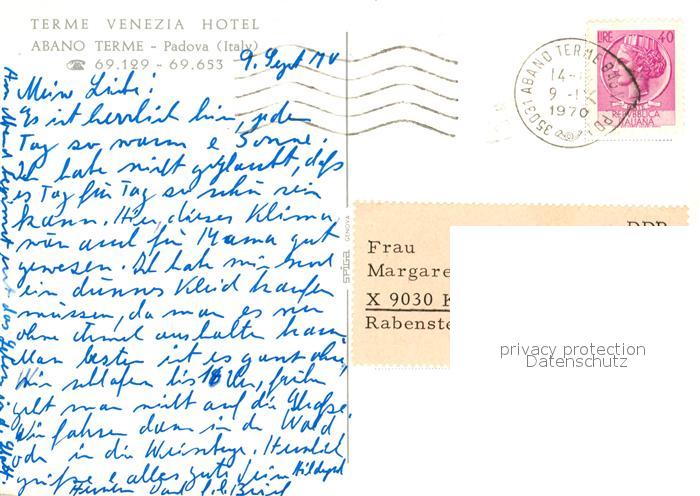 TERME VENEZIA HOTEL
ABANO TERME - Padova (Italy)
☎ 69.129 - 69.653
9. Sept
Meine Liebe!
Es ist herrlich hier, jeden
Tag so warm & Sonne.
Ich habe nicht geglaubt, daß
es Tag für Tag so schön sein
kann. Hier, dieses Klima
wär auch für Mama gut
gewesen. Ich habe mir noch
ein dünnes Kleid kaufen
müssen, da man es nur
ohne Ärmel aushalten kann.
Am besten ist es ganz ohne.
Wir schlafen bis Uhr, früher
geht man nicht auf die Straße.
Wir fahren dann in den Wald
oder in die Weinberge. Herzlich
grüße & alles gute Deine Hildegard
Am Abend beginnt erst das Leben in der Stadt.
LIRE 40
REPUBBLICA
ITALIANA
35031 ABANO TERME
14-
9 -
1970
SPIGA GENOVA
DDR
Frau
Margare
X 9030 K
Rabenste
privacy protection
Datenschutz